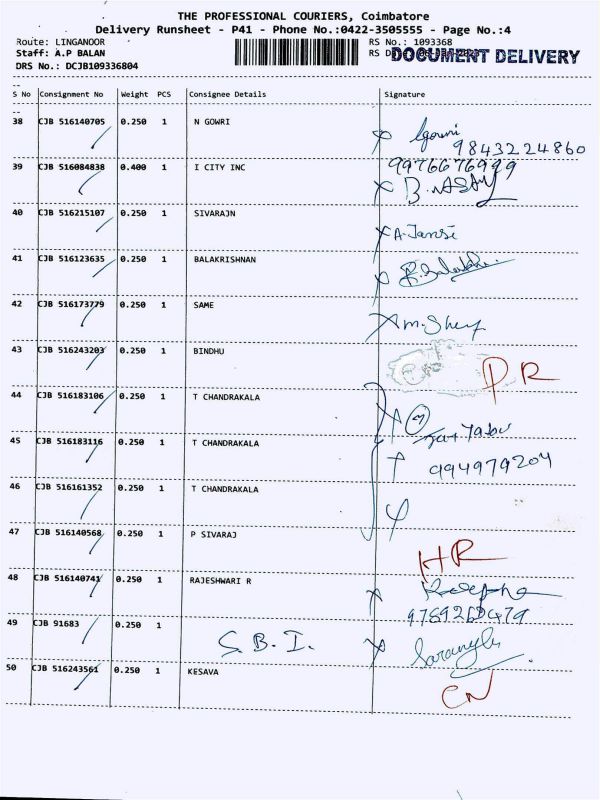 THE PROFESSIONAL COURIERS, Coimbatore
Delivery Runsheet - P41 - Phone No.:0422-3505555 - Page No.:4
Route: LINGANOOR RS No.: 1093368
Staff: A.P BALAN RS D DOCUMENT DELIVERY
DRS No.: DCJB109336804
S No Consignment No Weight PCS Consignee Details Signature
38 CJB 516140705 0.250 1 N GOWRI
9843224860
39 CJB 516084838 0.400 1 I CITY INC 9976676999
40 CJB 516215107 0.250 1 SIVARAJN A. Jansi
41 CJB 516123635 0.250 1 BALAKRISHNAN
42 CJB 516173779 0.250 1 SAME
43 CJB 516243203 0.250 1 BINDHU DR
44 CJB 516183106 0.250 1 T CHANDRAKALA
45 CJB 516183116 0.250 1 T CHANDRAKALA 994979204
46 CJB 516161352 0.250 1 T CHANDRAKALA
47 CJB 516140568 0.250 1 P SIVARAJ HR
48 CJB 516140741 0.250 1 RAJESHWARI R
49 CJB 91683 0.250 1 S.B.I.
50 CJB 516243561 0.250 1 KESAVA CN